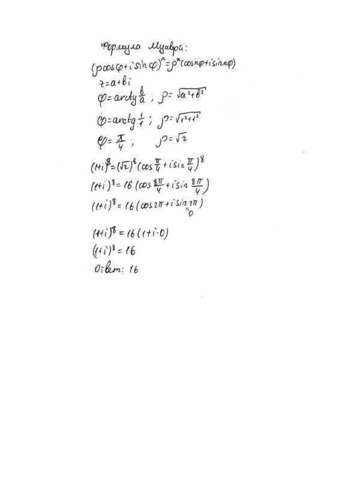 Формула Муавра:
(ρcosφ+i sinφ)ⁿ=ρⁿ(cosnφ+i sinnφ)
z=a+bi
φ=arctg b/a ; ρ=√a²+b²
φ=arctg 1/1 ; ρ=√1²+1²
φ= π/4 ; ρ=√2
(1+i)⁸=(√2)⁸(cos π/4 + i sin π/4)⁸
(1+i)⁸=16(cos 8π/4 + i sin 8π/4)
(1+i)⁸=16(cos2π+i sin2π)
0
(1+i)⁸=16(1+i·0)
(1+i)⁸=16
Ответ: 16